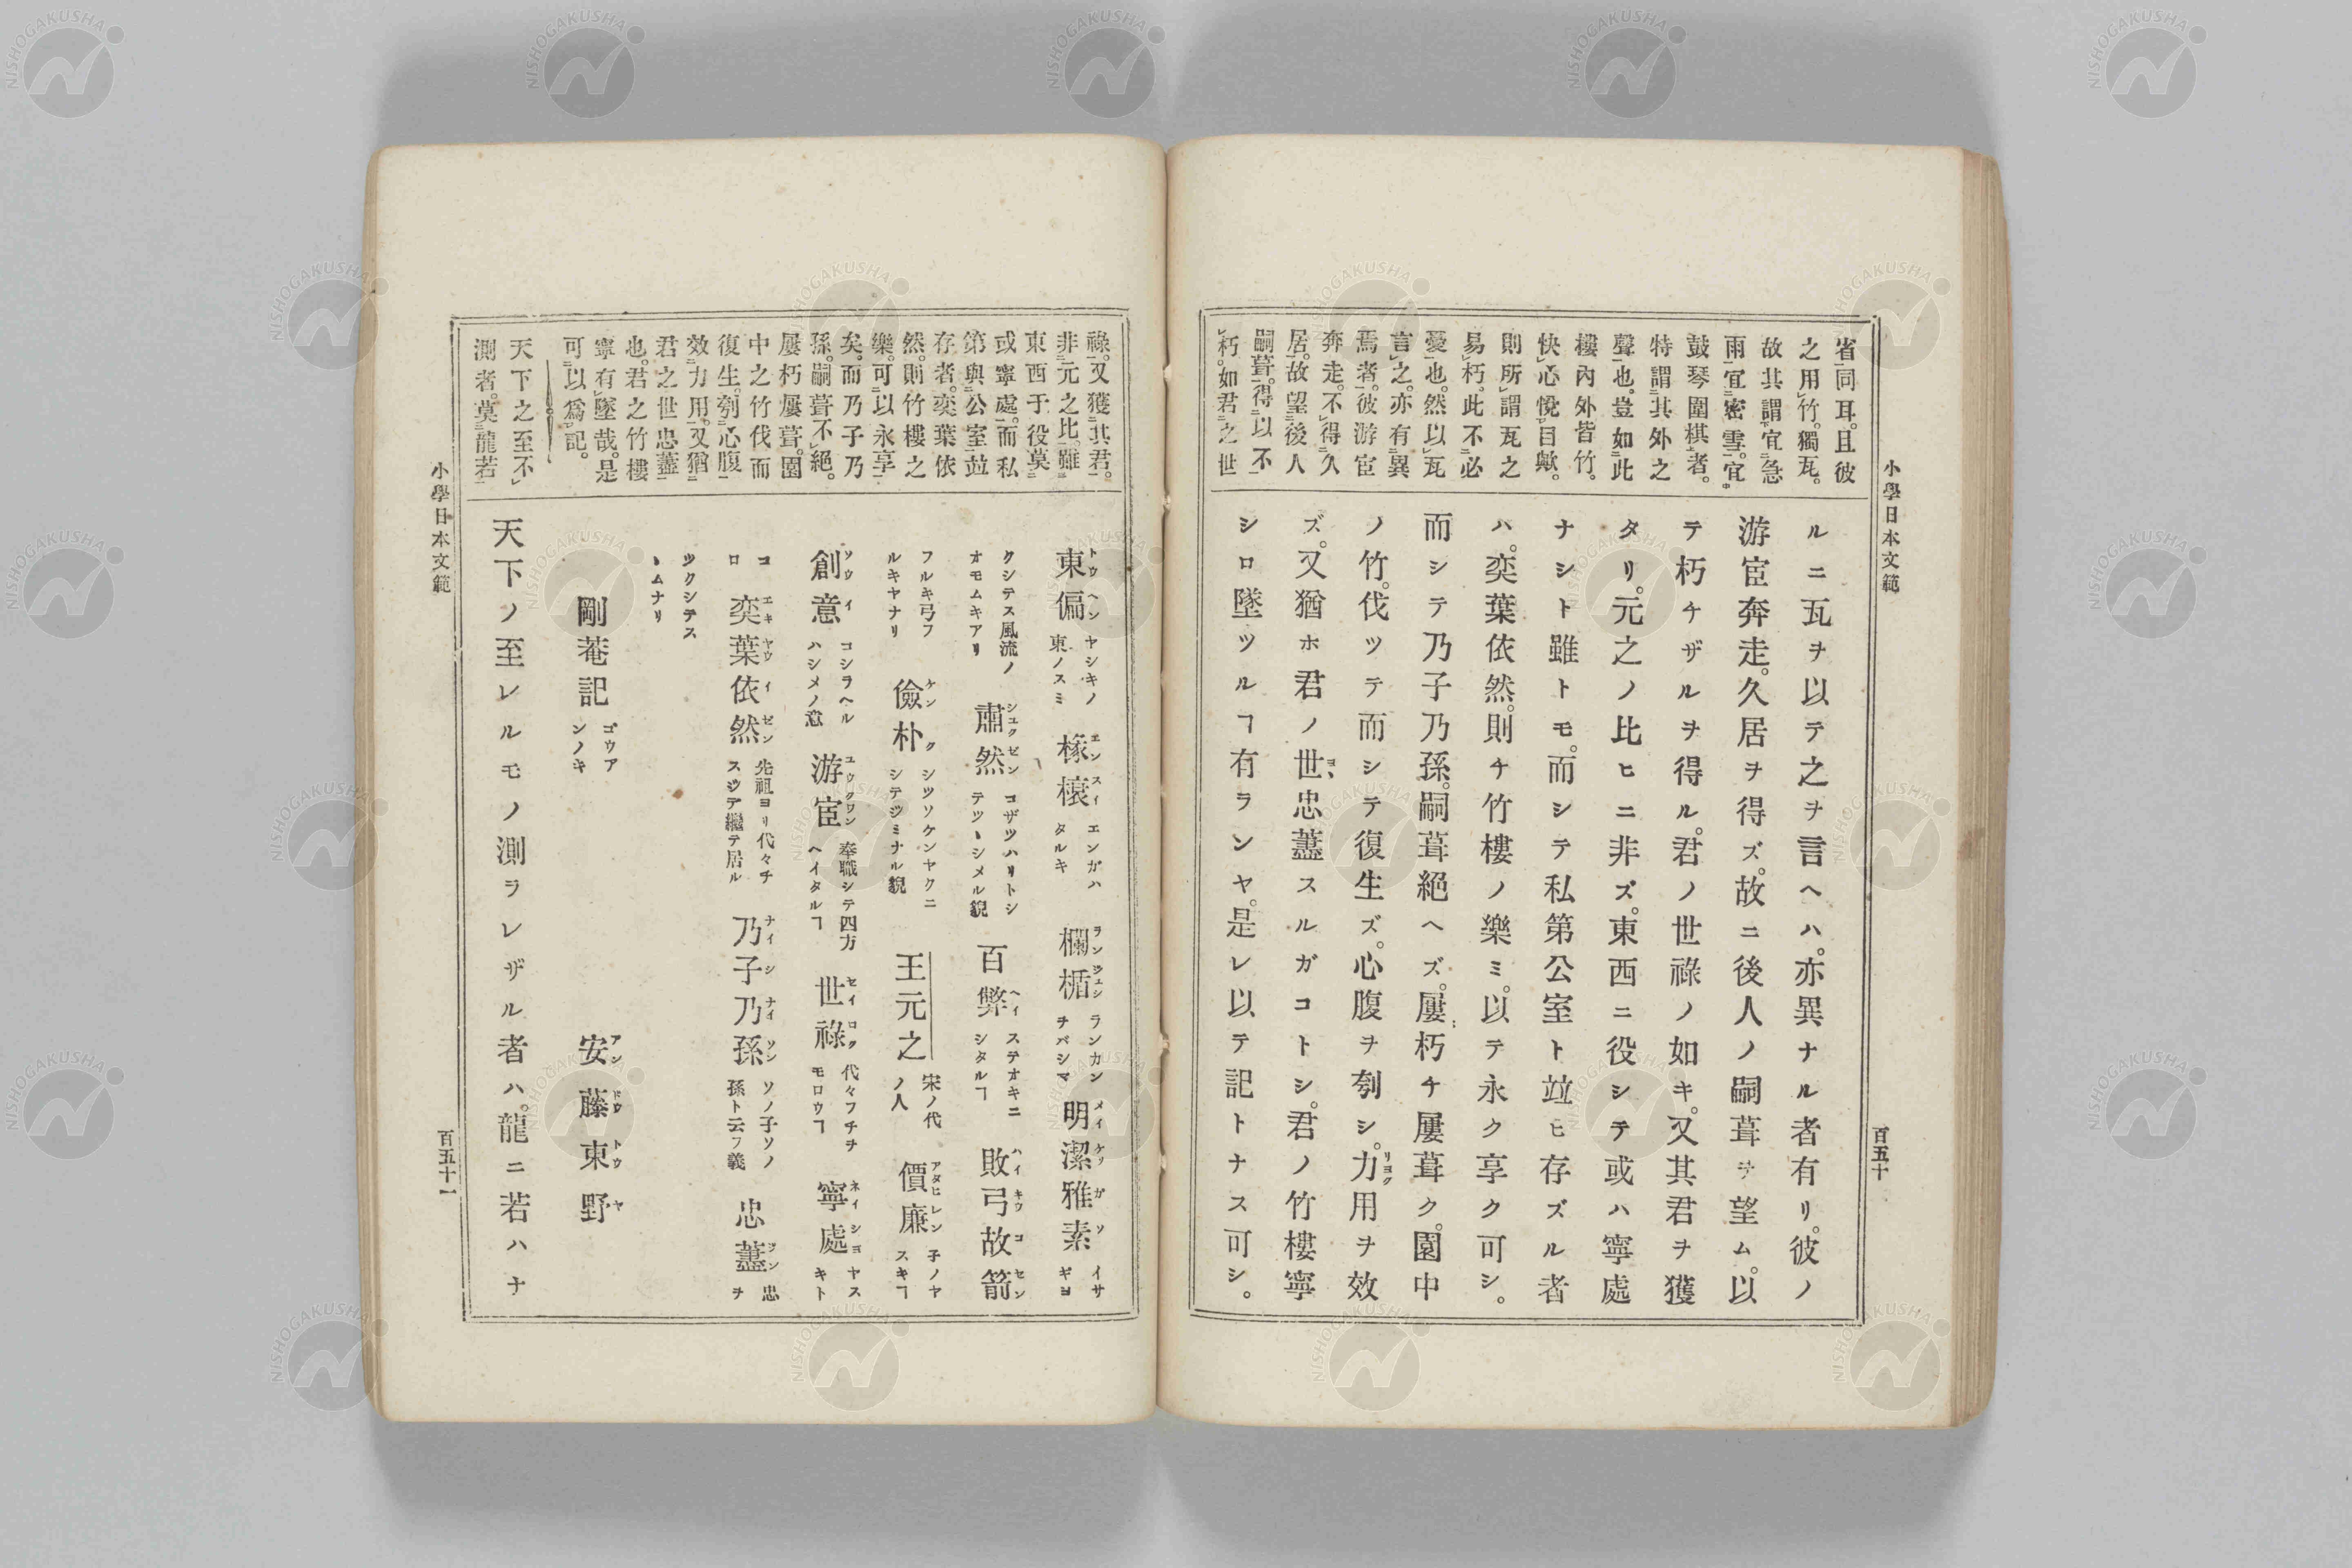 小學日本文範
百五十
省同耳。且彼
之用竹。獨瓦。
故其謂宜急
雨宜密雪。宜
鼓琴圍棋者。
特謂其外之
聲也。豈如此
樓內外皆竹。
快心悅目歟。
則所謂瓦之
易朽。此不必
憂也。然以瓦
言之。亦有異
焉者。彼游宦
奔走。不得久
居。故望後人
嗣葺。得以不
朽。如君之世
ルニ瓦ヲ以テ之ヲ言ヘハ。亦異ナル者有リ。彼ノ
游宦奔走。久居ヲ得ズ。故ニ後人ノ嗣葺ヲ望ム。以
テ朽チザルヲ得ル。君ノ世祿ノ如キ。又其君ヲ獲
タリ。元之ノ比ヒニ非ズ。東西ニ役シテ或ハ寧處
ナシト雖トモ。而シテ私第公室ト竝ヒ存ズル者
ハ。奕葉依然。則チ竹樓ノ樂ミ。以テ永ク享ク可シ。
而シテ乃子乃孫。嗣葺絕ヘズ。屢朽チ屢葺ク。園中
ノ竹。伐ツテ而シテ復生ズ。心腹ヲ刳シ。力用ヲ效
リヨク
ズ。又猶ホ君ノ世忠藎スルガコトシ。君ノ竹樓寧
シロ墜ツルヿ有ランヤ。是レ以テ記トナス可シ。
祿。又獲其君。
非元之比。雖
東西于役莫
或寧處。而私
第與公室竝
存者。奕葉依
然。則竹樓之
樂。可以永享
矣。而乃子乃
孫。嗣葺不絕。
屢朽屢葺。園
中之竹伐而
復生。刳心腹
效力用。又猶
君之世忠藎
也。君之竹樓
寧有墜哉。是
可以爲記。
天下之至不
測者。莫龍若
東偏 トウヘン ヤシキノ東ノスミ 椽榱 エンスイ エンガハタルキ 欄楯 ランジュン ランカンチバシマ 明潔雅素 メイケツガソ イサギヨ
クシテス風流ノオモムキアリ 肅然 シュクゼン コザツハリトシテツヽシメル貌 百弊 ヘイ ステオキニシタルヿ 敗弓故箭 ハイキウコセン
フルキ弓フルキヤナリ 儉朴 ケンク シツソケンヤクニシテツミナル貌 王元之 宋ノ代ノ人 價廉 アタヒレン 子ノヤスキヿ
創意 ソウイ コシラヘルハシメノ意 游宦 ユウクワン 奉職シテ四方ヘイタルヿ 世祿 セイロク 代々フチヲモロウヿ 寧處 ネイシヨ ヤスキト
コロ 奕葉依然 エキヤウイゼン 先祖ヨリ代々チスヂテ繼テ居ル 乃子乃孫 ナイシナイソン ソノ子ソノ孫ト云フ義 忠藎 ジン 忠ヲ
ツクシテスヽムナリ
剛菴記 ゴウアンノキ 安藤東野 アンドウトウヤ
天下ノ至レルモノ測ラレザル者ハ。龍ニ若ハナ
小學日本文範
百五十一
NISHOGAKUSHA